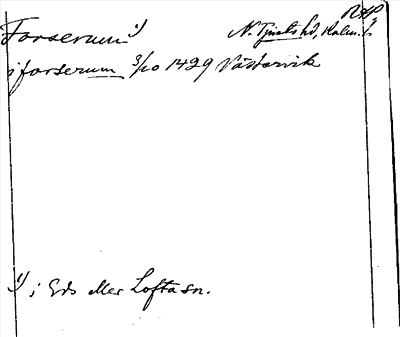 RAP
Forserum 1) N. Tjusts hd, Kalm. l.
i forserum 3/10 1429 Västervik
1) i Eds eller Lofta sn.